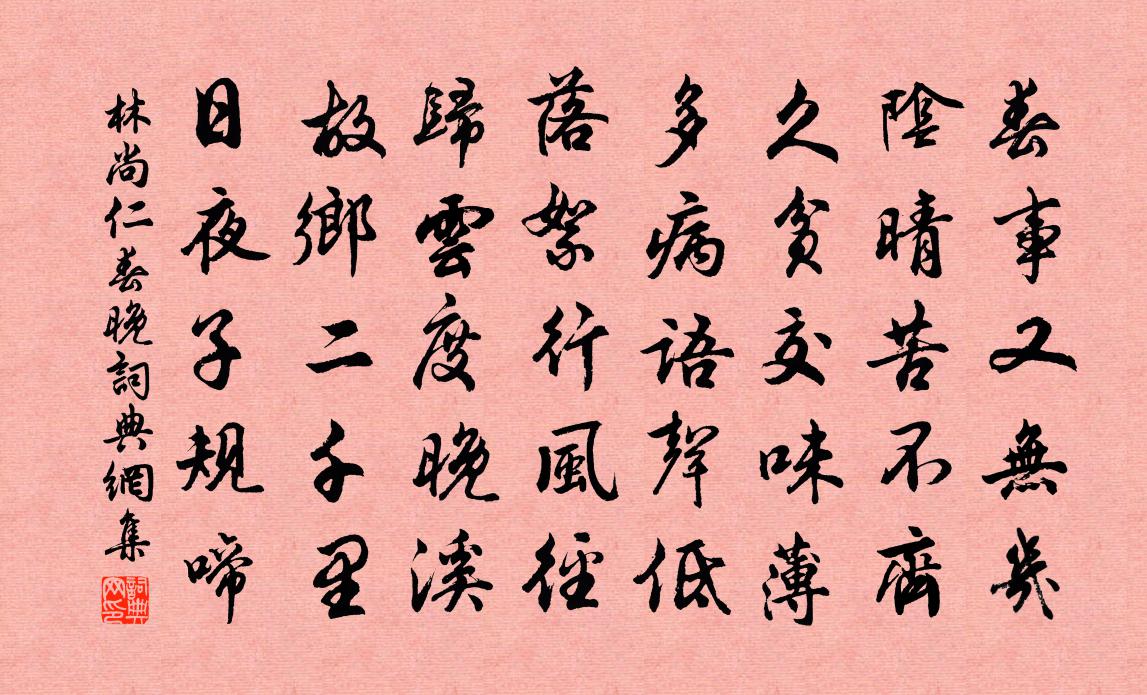 春事又無幾
陰晴苦不齊
久貧交味薄
多病語聲低
落絮行風徑
歸雲度晚溪
故鄉二千里
日夜子規啼
林尚仁春晚詞典網集
詞典网印